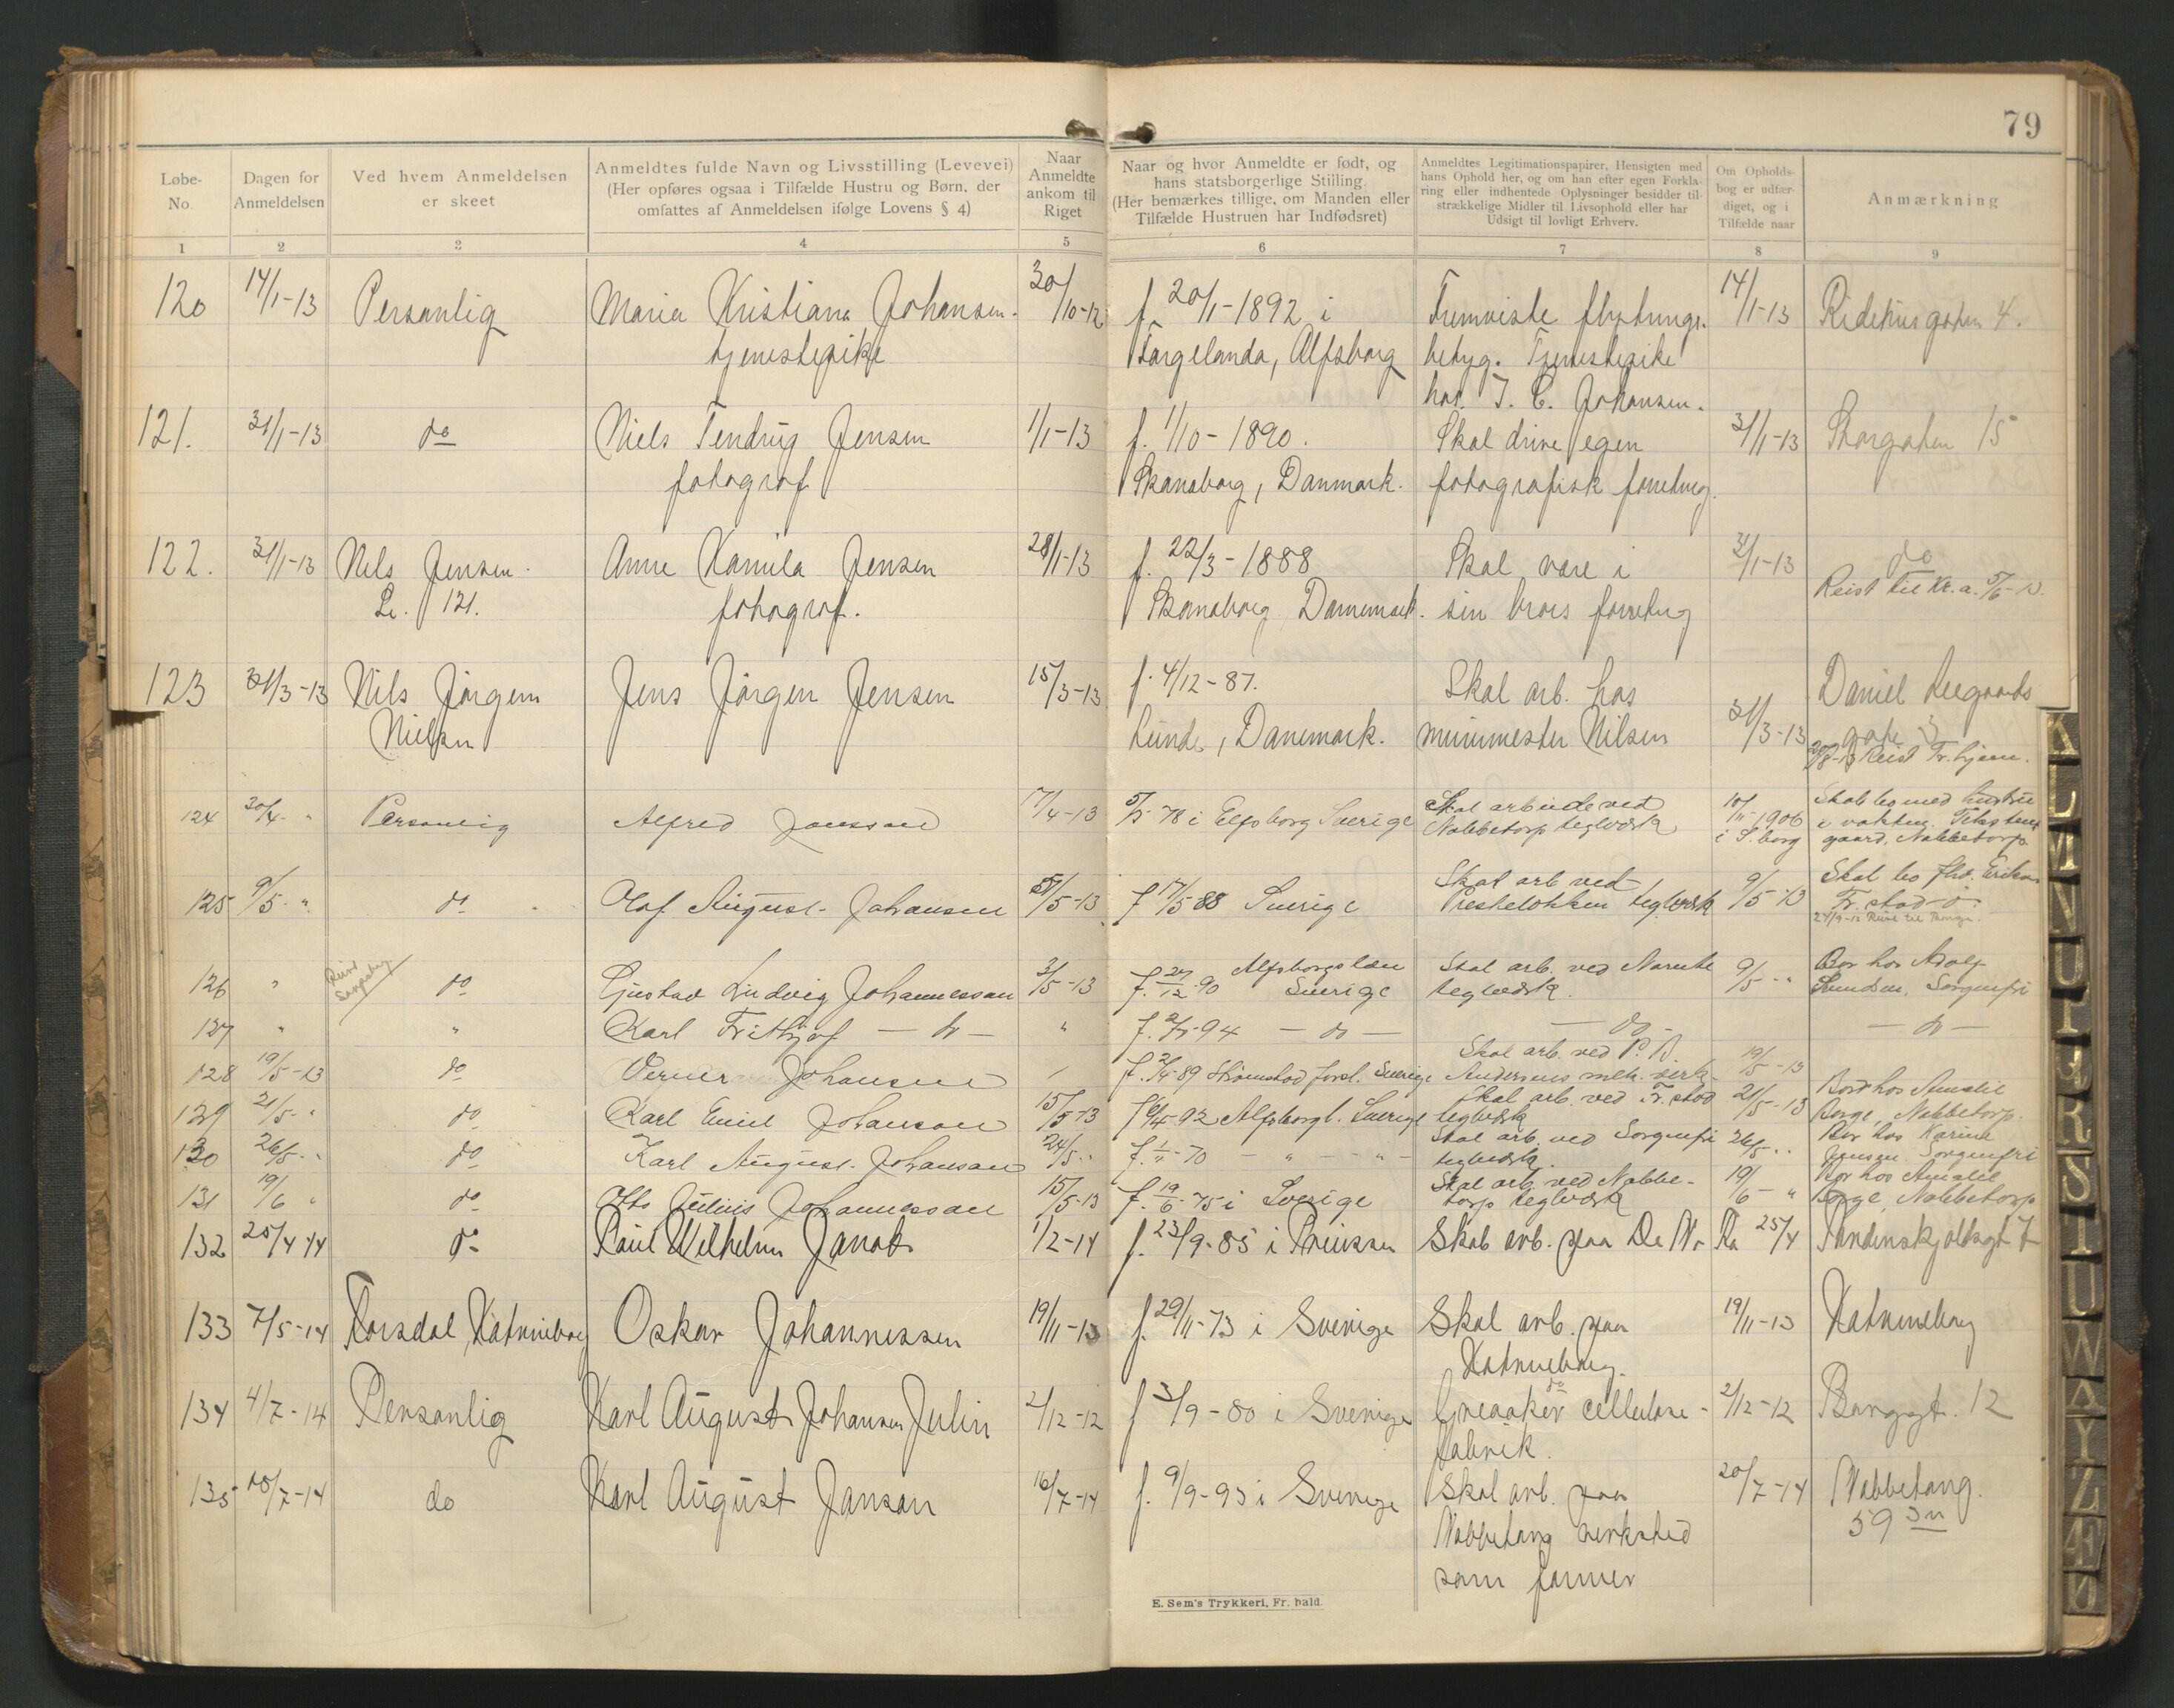 79
Løbe-No.
Dagen for Anmeldelsen
Ved hvem Anmeldelsen er skeet
Anmeldtes fulde Navn og Livsstilling (Levevei)
(Her opføres ogsaa i Tilfælde Hustru og Børn, der
omfattes af Anmeldelsen ifølge Lovens § 4)
Naar Anmeldte ankom til Riget
Naar og hvor Anmeldte er født, og
hans statsborgerlige Stiiling.
(Her bemærkes tillige, om Manden eller
Tilfælde Hustruen har Indfødsret)
Anmeldtes Legitimationspapirer, Hensigten med
hans Ophold her, og om han efter egen Forkla-
ring eller indhentede Oplysninger besidder til-
strækkelige Midler til Livsophold eller har
Udsigt til lovligt Erhverv.
Om Opholds-
bog er udfær-
diget, og i
Tilfælde naar
Anmærkning
1 2 3 4 5 6 7 8 9
120 14/1-13 Personlig Maria Kristiana Johansen. 30/10-12 f. 20/1-1892 i Fremviste flytnings. 14/1-13 Ridehusgaten 4.
tjenestepike Färgelanda, Alfsborg betyg. Tjenestepike
hos J. C. Johansen.
121. 31/1-13 do Niels Tendrup Jensen 1/1-13 f. 1/10-1890. Skal drive egen 31/1-13 Storgaten 15
fotograf Skanaborg, Danmark. fotografisk forretning.
122. 31/1-13 Nils Jensen. Anne Kamila Jensen 28/1-13 f. 22/3-1888 Skal være i 31/1-13 do
L. 121. fotograf. Skanaborg Danemark. sin brors forretng Reist til Kr.a. 5/6-13.
123 31/3-13 Nils Jørgen Jens Jörgen Jensen 15/3-13 f. 4/12-87. Skal arb. hos 31/3-13 Daniel Leegaards
Nielsen Lunde, Danemark. murmester Nilsen gate 3
Reist Fr. hjem.
124 30/4 " Personlig Alfred Jonsson 17/4-13 5/5 78 i Elfsborg Sverige Skal arbeide ved 10/11-1906 Skal bo med hustru
Nabbetorp teglverk i S.borg gaard, Nabbetorp
125 9/5 " do Olof August Johansen 5/5-13 f 17/5-88 Sverige Skal arb ved 9/5-13 Skal bo
Presteløkken teglverk Fr.stad
126 " Reist Sarpsborg do Gustav Ludvig Johannessen 3/5-13 f. 27/12-90 Alfsborgs län Skal arb. ved Narnte 9/5 " Bor hos Adolf
Sverige teglverk. Sorgenfri
127 " " Karl Frithjof — do — " f. 2/5-94 — do — — do — — do —
128 19/5-13 do Verner Johansen / f. 2/4-89 Strømstad Sverige Skal arb. ved P. A. 19/5-13
Andersens mek. verk.
129 21/5 " do Karl Emil Johanson 15/5-13 f 6/4-92 Alfsborgl. Sverige Skal arb. ved Fr.stad 21/5-13 Bor hos Amalie
teglverk Borge, Nabbetorp.
130 26/5 " do Karl August Johanson 24/5 " f. 1/11-70 — " — " — Skal arb. ved Sorgenfri 26/5 " Bor hos Karine
teglverk. Jensen Sorgenfri
131 19/6 " do Otto Julius Johannessen 15/5-13 f. 19/6-75 i Sverige Skal arb. ved Nabbe- 19/6 - " Bor hos Amalie
torp teglverk Borge, Nabbetorp
132 25/4 14 do Paul Wilhelm Janot 1/2-14 f. 23/9-85 i Preussen Skal arb. paa De No 25/4 Tordenskjoldsgt 7
133 7/5-14 Torsdal, Katrineborg Oskar Johannessen 19/11-13 f. 29/11-73 i Sverige Skal arb. paa 19/11-13 Katrineborg
Katrineborg.
134 4/7-14 Personlig Karl August Johansen Julin 2/12-12 f 3/9-80 i Sverige do Greaaker cellulose- 2/12-12 Borggt. 12
fabrik.
135 18/7-14 do Karl August Janson 16/7-14 f. 9/9-93 i Sverige Skal arb. paa 20/7-14 Nabbetorp.
Nabbetorp verksted 59
som former
E. Sem's Trykkeri, Fr. hald
K L M N U P E R S T U W A Y Z Æ Ø